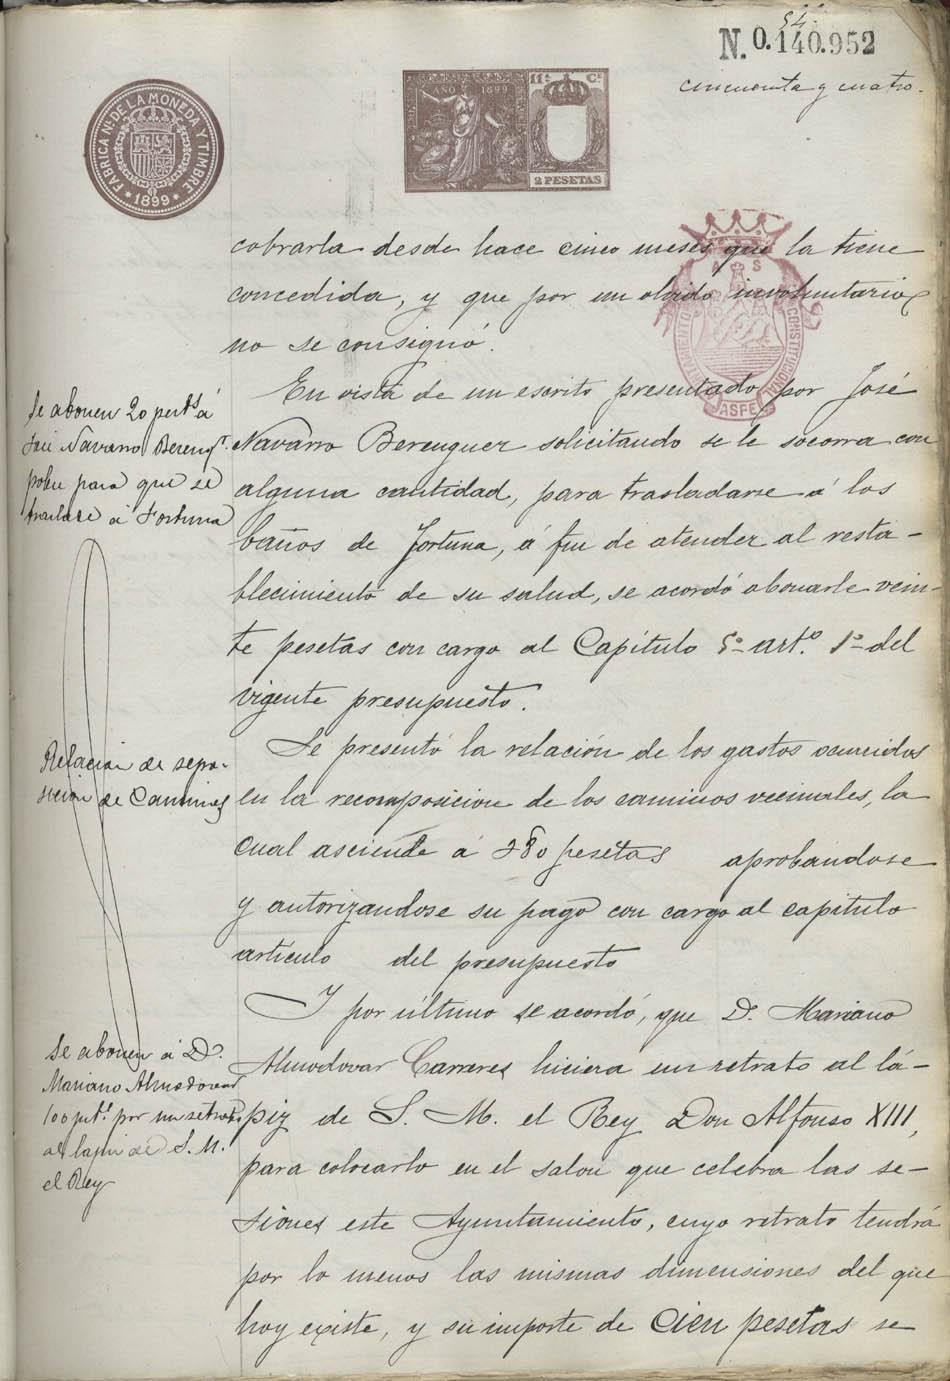 54.
N. 0.140.952
cincuenta y cuatro.
FABRICA Nl. DE LA MONEDA Y TIMBRE
* 1899 *
AÑO 1899
11ª Cª
2 PESETAS
AYUNTAMIENTO CONSTITUCIONAL
ASPE
cobrarla desde hace cinco meses que la tiene
concedida, y que por un olvido involuntario
no se consignó.
Se abonen 20 pents á
José Navarro Berengr.
pobre para que se
traslade á Fortuna
En vista de un escrito presentado por José
Navarro Berenguer solicitando se le socorra con
alguna cantidad, para trasladarse á los
baños de Fortuna, á fin de atender al resta-
blecimiento de su salud, se acordó abonarle vein-
te pesetas con cargo al Capítulo 5º artº. 1º del
vigente presupuesto.
Relacion de repo-
sicion de Caminos
Se presentó la relación de los gastos ocurridos
en la recomposicion de los caminos vecinales, la
cual asciende á 280 pesetas aprobandose
y autorizandose su pago con cargo al capitulo
articulo del presupuesto
Se abonen á D.
Mariano Almodovar
100 pts. por un retrato
al lapiz de S. M.
el Rey
Y por último se acordó, que D. Mariano
Almodovar Carreres hiciera un retrato al lá-
piz de S. M. el Rey Don Alfonso XIII,
para colocarlo en el salon que celebra las se-
siones este Ayuntamiento, cuyo retrato tendrá
por lo menos las mismas dimensiones del que
hoy existe, y su importe de Cien pesetas se